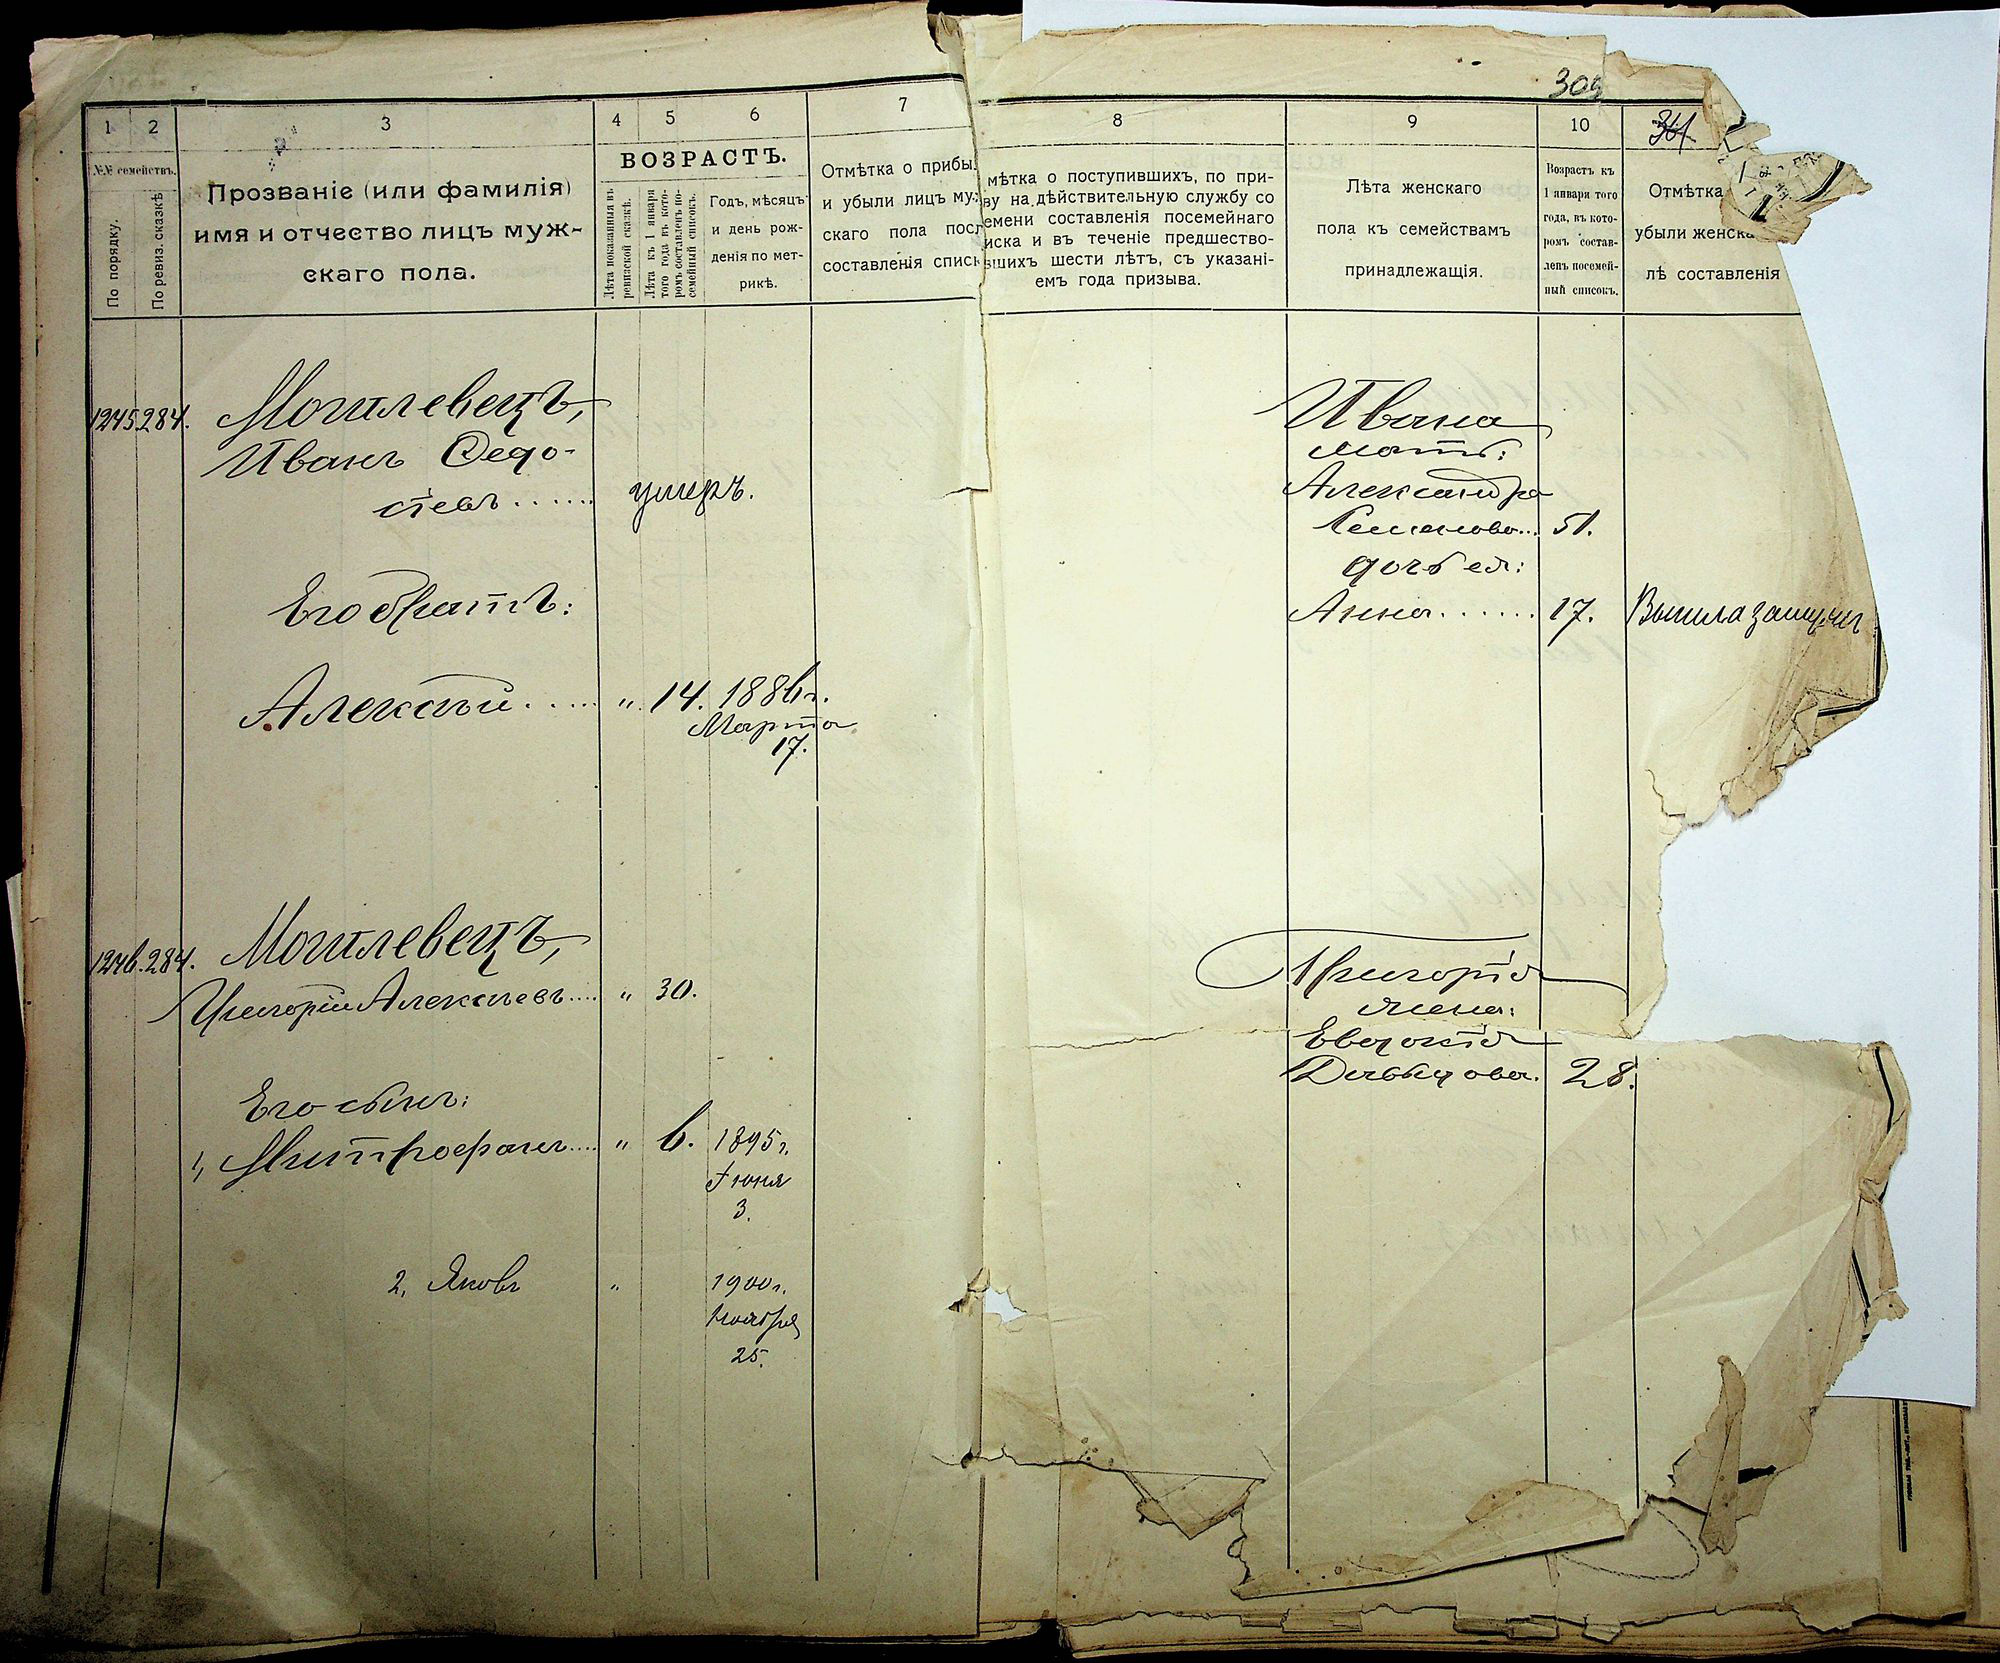 309
1
2
3
4
5
6
7
8
9
10
361
№№ семействъ.
По порядку.
По ревиз. сказкѣ
Прозваніе (или фамилія)
имя и отчество лицъ муж-
скаго пола.
ВОЗРАСТЪ.
Лѣта показанныя въ
ревизской сказкѣ.
Лѣта къ 1 января
того года въ кото-
ромъ составленъ по-
семейный списокъ.
Годъ, мѣсяцъ
и день рож-
денія по мет-
рикѣ.
Отмѣтка о прибы
и убыли лицъ му
скаго пола посл
составленія списк
мѣтка о поступившихъ, по при-
ву на дѣйствительную службу со
емени составленія посемейнаго
иска и въ теченіе предшество-
вшихъ шести лѣтъ, съ указані-
емъ года призыва.
Лѣта женскаго
пола къ семействамъ
принадлежащія.
Возрастъ къ
1 января того
года, въ кото-
ромъ состав-
ленъ посемей-
ный списокъ.
Отмѣтка
убыли женска
лѣ составленія
1245. 284. Могилевецъ,
Иванъ Ѳедо-
сіевъ...... умеръ.
Его братъ:
Алексѣй..... " 14. 1886 г.
Марта
17.
Ивана
мать:
Александра
Семенова... 51.
дочь ея:
Анна...... 17. Вышла замужъ
1246. 284. Могилевецъ,
Григорій Алексѣевъ.... " 30.
Его сынъ:
1, Митрофанъ.... " 6. 1895 г.
Іюня
3.
2, Яковъ " 1900 г.
Ноября
25.
Григорія
жена:
Евдокія
Давыдова. 28.